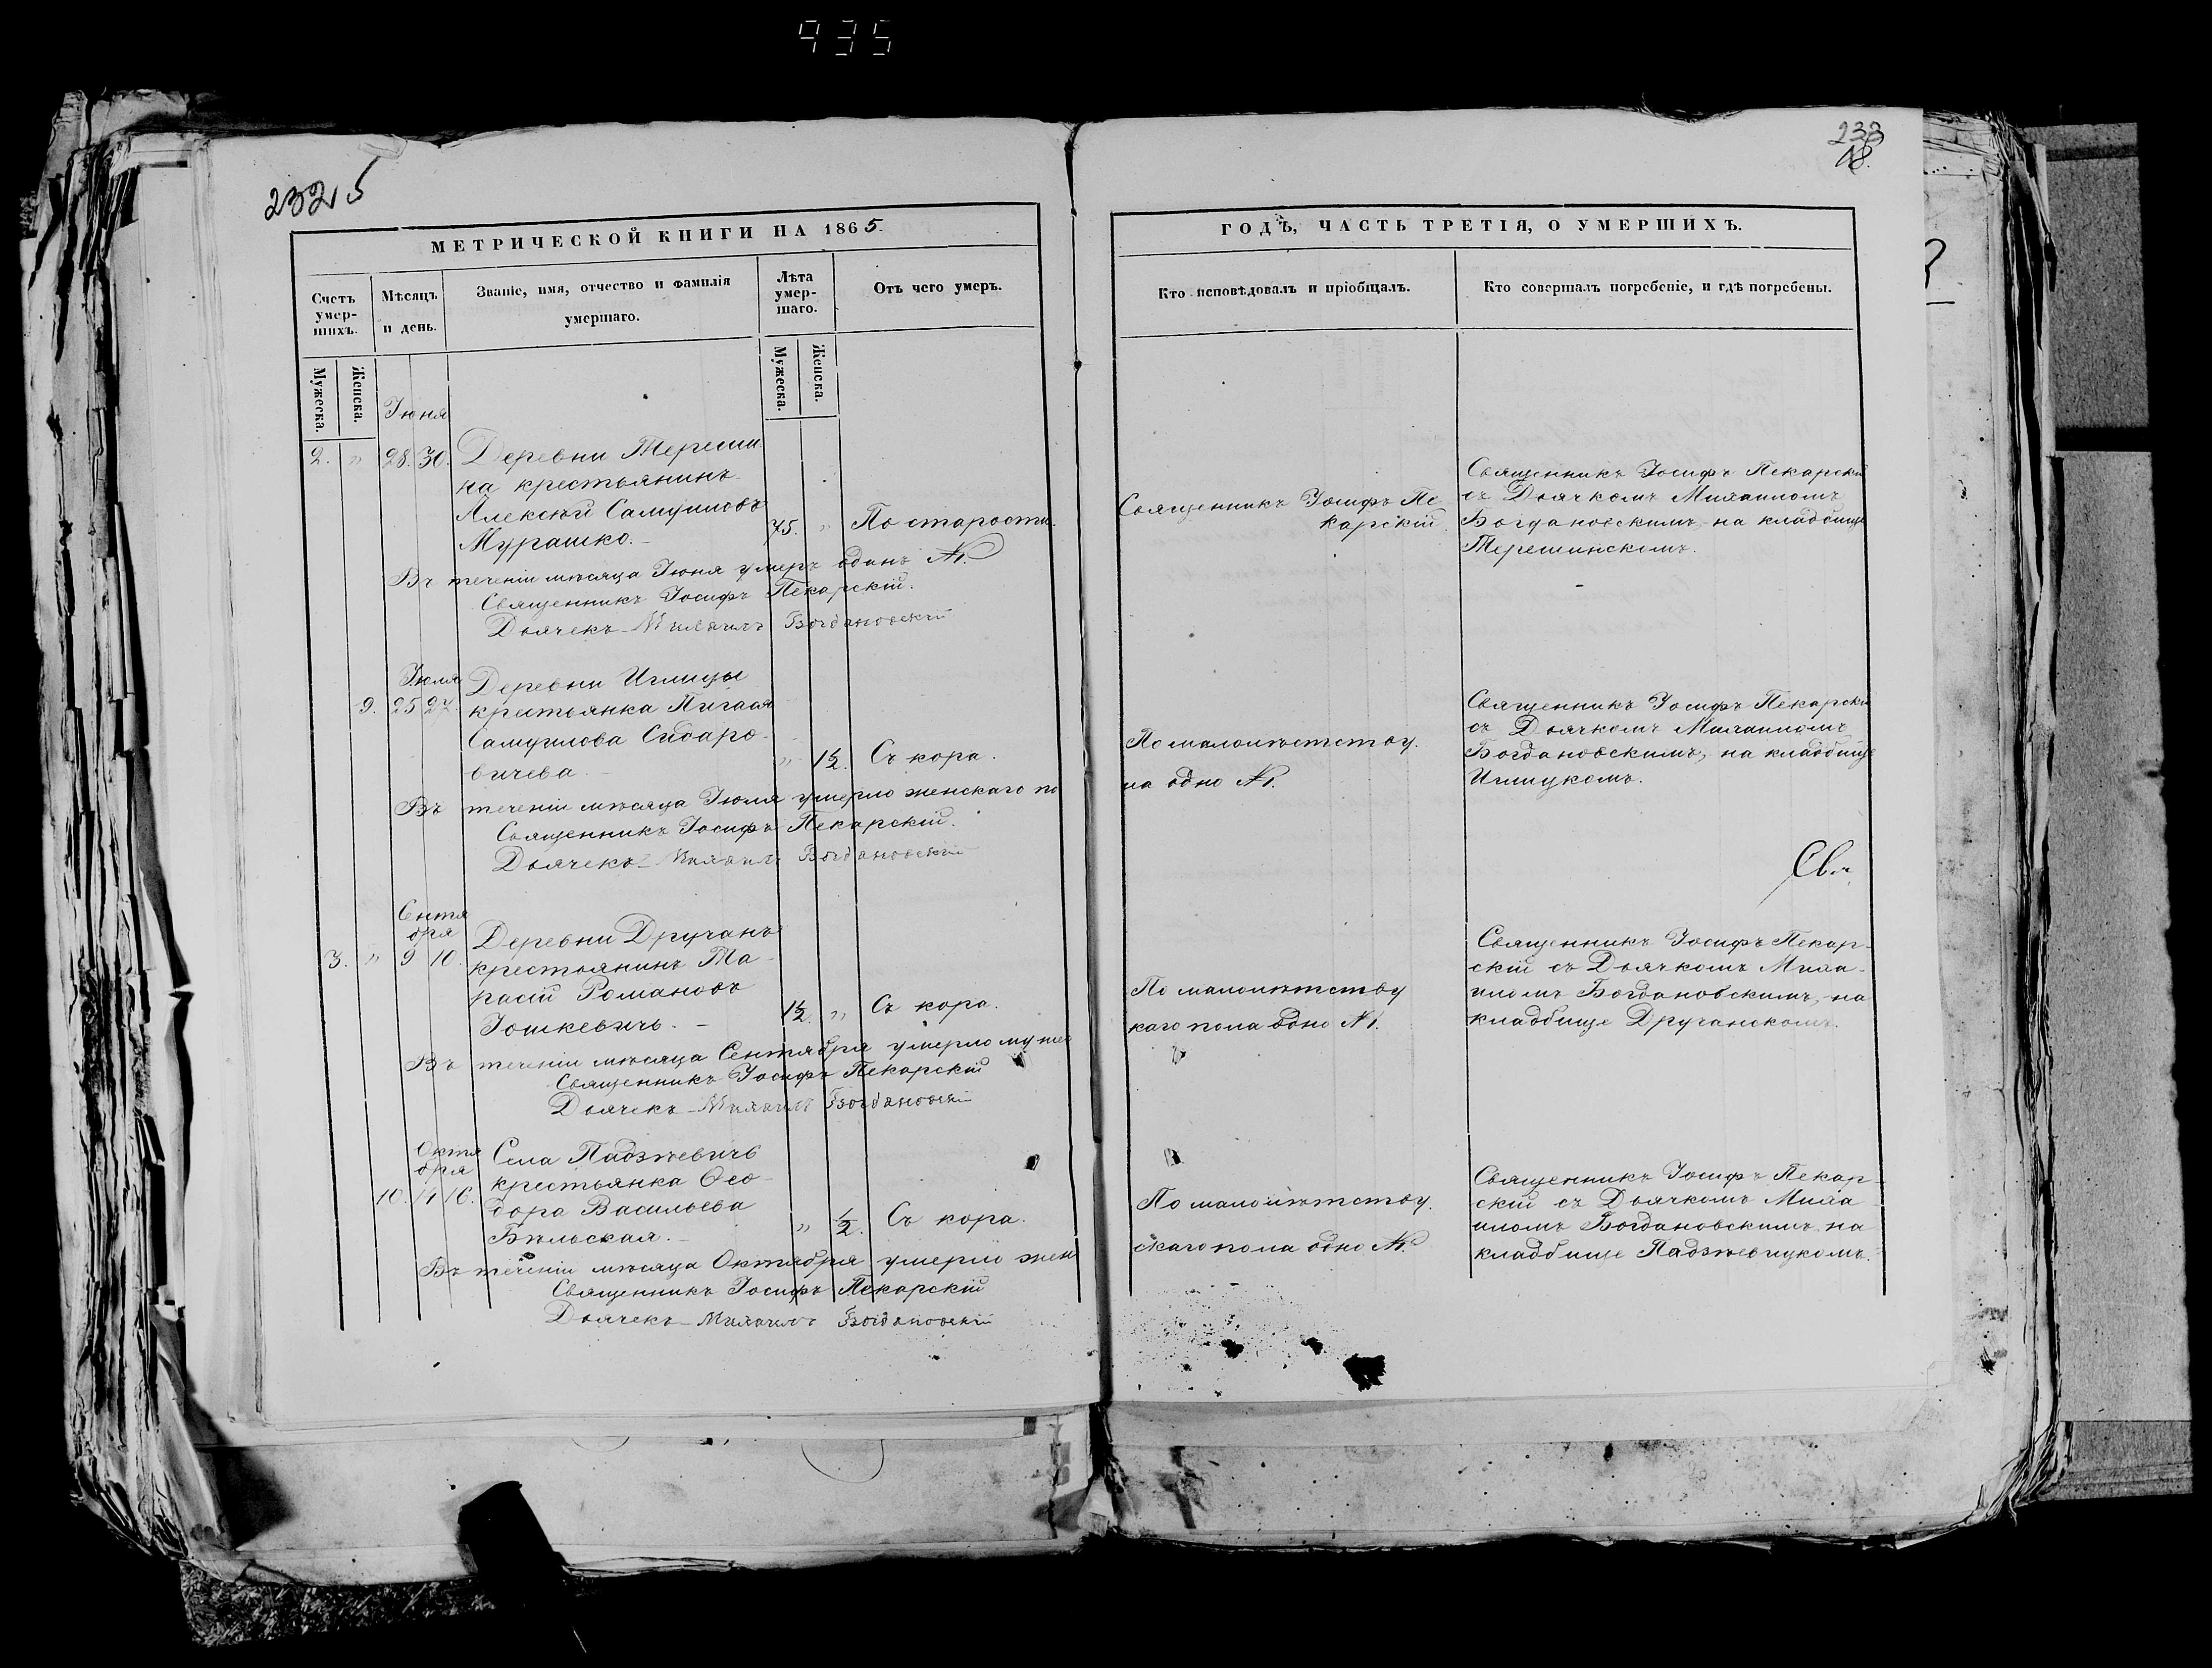 935
232 5
233
18.
МЕТРИЧЕСКОЙ КНИГИ НА 1865.
Счетъ умер-шихъ.
Мѣсяцъ и день.
Званіе, имя, отчество и фамилія
умершаго.
Лѣта умер-шаго.
Отъ чего умеръ.
Мужеска.
Женска.
Мужеска.
Женска.
Іюня
2. " 28. 30. Деревни Тереши
на крестьянинъ
Алексѣй Самуиловъ
Мурашко. 75. " По старости.
Въ теченіи мѣсяца Іюня умеръ одинъ №1.
Священникъ Іосифъ Пекарскій.
Дьячекъ Михаилъ Богдановскій
Іюля
Деревни Иглицы
9. 25 27. крестьянка
Самуилова
вичева. " 1½. Съ кора.
Въ теченіи мѣсяца Іюля умерло женскаго по
Священникъ Іосифъ Пекарскій.
Дьячекъ Михаилъ Богдановскій
Сентя
бря
Деревни Дручанъ
3. " 9 10. крестьянинъ Та-
расій Романовъ
Іошкевичъ. 1½. " Съ кора.
Въ теченіи мѣсяца Сентября умерло мужес
Священникъ Іосифъ Пекарскій
Дьячекъ Михаилъ Богдановскій
Октя
бря
Села Падзѣевичъ
10. 14 16. крестьянка Ѳео-
дора Васильева
Бѣльская. " ½. Съ кора.
Въ теченіи мѣсяца Октября умерло жен
Священникъ Іосифъ Пекарскій
Дьячекъ Михаилъ Богдановскій
ГОДЪ, ЧАСТЬ ТРЕТІЯ, О УМЕРШИХЪ.
Кто исповѣдовалъ и пріобщалъ.
Кто совершалъ погребеніе, и гдѣ погребены.
Священникъ Іосифъ Пе
карскій.
Священникъ Іосифъ Пекарскій
съ Дьячкомъ Михаиломъ
Богдановскимъ, на кладбищѣ
Терешинскомъ.
По малолѣтству.
ла одно №1.
Священникъ Іосифъ Пекарскій
съ Дьячкомъ Михаиломъ
Богдановскимъ, на кладбищѣ
Иглицкомъ.
Свя
По малолѣтству
каго пола одно №1.
Священникъ Іосифъ Пекар-
скій съ Дьячкомъ Миха-
иломъ Богдановскимъ, на
кладбище Дручанскомъ.
По малолѣтству.
скаго пола одно №1.
Священникъ Іосифъ Пекар-
скій съ Дьячкомъ Миха
иломъ Богдановскимъ на
кладбище Падзѣевицкомъ.